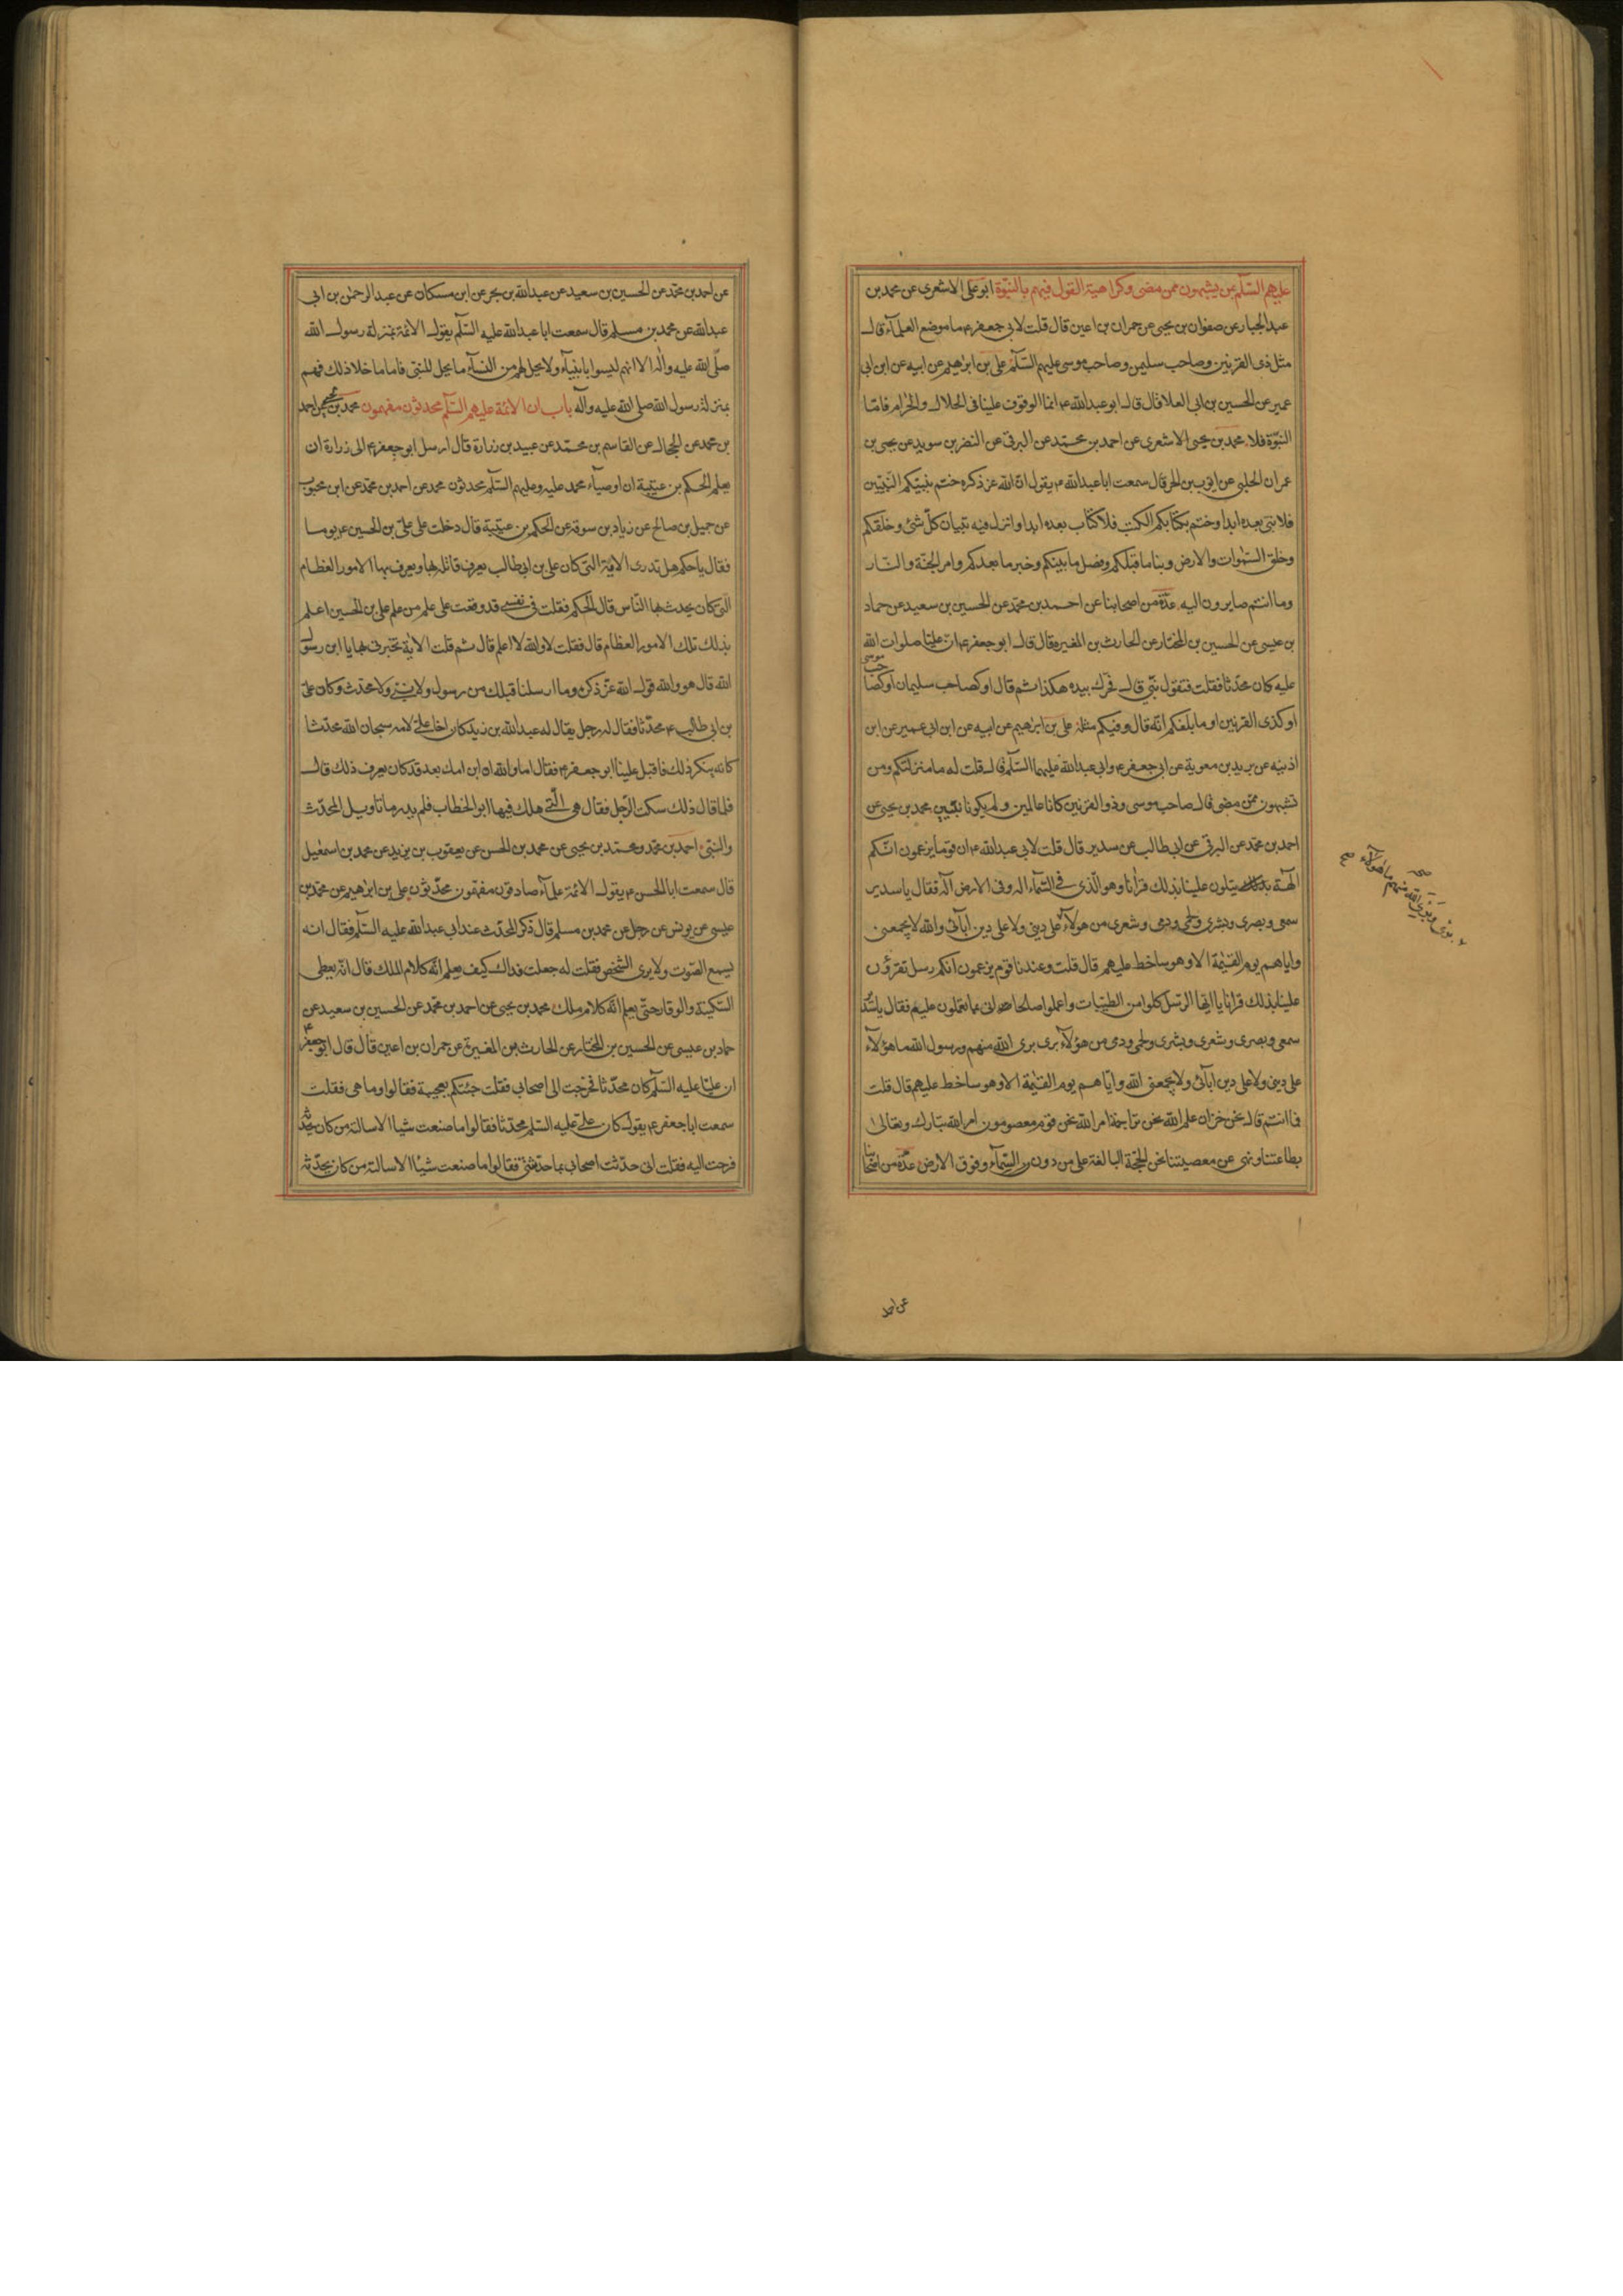 عليهم السّلم بمن يشبهون ممن مضى وكراهية القول فيهم بالنبّوة ابو على الاشعرى عن محمد بن
عبد الجبار عن صفوان بن يحيى عن حمران بن اعين قال قلت لابى جعفر ع ما موضع العلمآء قال
مثل ذى القرنين وصاحب سليمن وصاحب موسى عليهم السّلم على بن ابرهيم عن ابيه عن ابن ابى
عمير عن الحسين بن ابى العلا قال قال ابو عبد الله ع انما الوقوف علينا فى الحلال والحرام فامّا
النبّوة فلا محمد بن يحيى الاشعرى عن احمد بن محمّد عن البرقى عن النضر بن سويد عن يحيى بن
عمران الحلبى عن ايوب بن الحر قال سمعت ابا عبد الله ع يقول انّ الله عز ذكره ختم بنبيّكم النّبيّين
فلا نبى بعده ابدا وختم بكتابكم الكتب فلا كتاب بعده ابدا وانزل فيه تبيان كلّ شئ وخلقكم
وخلق السّموات والارض ونبا ما قبلكم وفصل ما بينكم وخبر ما بعدكم وامر الجنّة والنّار
وما انتم صايرون اليه عدّة من اصحابنا عن احمد بن محمّد عن الحسين بن سعيد عن حماد
بن عيسى عن الحسين بن المختار عن الحارث بن المغيرة قال قال ابو جعفر ع ان عليّا صلوات الله
عليه كان محدّثا فقلت فتقول نبّى قال فحرّك بيده هكذا ثم قال او كصاحب سليمان او كصاحب موسى
او كذى القرنين او ما بلغكم انّه قال وفيكم مثله على بن ابرهيم عن ابيه عن ابن ابى عمير عن ابن
اذينه عن بريد بن معوية عن ابى جعفر ع وابى عبد الله عليهما السّلم قال قلت له ما منزلتكم ومن
تشبهون ممّن مضى قال صاحب موسى وذو القرنين كانا عالمين ولم يكونا نبيّين محمد بن يحيى عن
احمد بن محمّد عن البرقى عن ابى طالب عن سدير قال قلت لابى عبد الله ع ان قوما يزعمون انّكم
الهة يتلون علينا بذلك قرانا وهو الّذى فى السّمآء اله وفى الارض اله فقال يا سدير
سمعى وبصرى وبشرى ولحمى ودمى وشعرى من هولآء على دينى ولا على دين آبائى والله لا يجمعنى
واياهم يوم القيٰمة الا وهو ساخط عليهم قال قلت وعندنا قوم يزعمون انكم رسل تقرؤن
علينا بذلك قرانا يا ايها الرسل كلوا من الطيبات واعملوا صالحا انى بما تعملون عليم فقال يا سدير
سمعى وبصرى وشعرى وبشرى ولحمى ودمى من هؤلآء برى برى الله منهم ورسول الله ما هؤلآء
على دينى ولا على دين ابآئى ولا يجمعنى الله واياهم يوم القيٰمة الا وهو ساخط عليهم قال قلت
فما انتم قال نحن خزان علم الله نحن تراجمة امر الله نحن قوم معصومون امر الله تبارك وتعالى
بطاعتنا ونهى عن معصيتنا نحن الحجّة البالغة على من دون السّمآء وفوق الارض عدّة من اصحابنا
برئ وبرئ الله منهم ما هؤلآء
عن احمد
عن احمد بن محمّد عن الحسين بن سعيد عن عبد الله بن بحر عن ابن مسكان عن عبد الرحمن بن ابى
عبد الله عن محمد بن مسلم قال سمعت ابا عبد الله عليه السّلم يقول الائمة بمنزلة رسول الله
صلّى الله عليه واله الا انهم ليسوا بانبيآء ولا يحل لهم من النسآء ما يحل للنبى فاما ما خلا ذلك فهم
بمنزلة رسول الله صلى الله عليه وآله باب ان الائمة عليهم السّلم محدثون مفهمون محمد بن يحيى عن احمد
بن محمد عن الحجال عن القاسم بن محمّد عن عبيد بن زرارة قال ارسل ابو جعفر ع الى زرارة ان
يعلم الحكم بن عيتبة ان اوصيآء محمد عليه وعليهم السّلم محدثون محمد عن احمد بن محمّد عن ابن محبوب
عن جميل بن صالح عن زياد بن سوقة عن الحكم بن عيتبة قال دخلت على علىّ بن الحسين ع يوما
فقال يا حكم هل تدرى الاية التى كان على بن ابى طالب يعرف قاتله بها ويعرف بها الامور العظام
التى كان يحدث بها النّاس قال الحكم فقلت فى نفسى قد وقعت على علم من علم على بن الحسين اعلم
بذلك تلك الامور العظام قال فقلت لا والله لا اعلم قال ثم قلت الاية تخبرنى بها يا ابن رسول
الله قال هو والله قول الله عزّ ذكره وما ارسلنا قبلك من رسول ولا نبى ولا محدّث وكان على
بن ابى طالب ع محدّثا فقال له رجل يقال له عبد الله بن زيد كان اخا على لامه سبحان الله محدثا
كانه ينكر ذلك فاقبل علينا ابو جعفر ع فقال اما والله ان ابن امك بعد قد كان يعرف ذلك قال
فلما قال ذلك سكت الرّجل فقال هى الّتى هلك فيها ابو الخطاب فلم يدر ما تاويل المحدّث
والنبى احمد بن محمّد ومحمّد بن يحيى عن محمد بن الحسن عن يعقوب بن يزيد عن محمد بن اسمعيل
قال سمعت ابا الحسن ع يقول الائمة علمآء صادقون مفهمون محدّثون على بن ابرهيم عن محمّد بن
عيسى عن يونس عن رجل عن محمد بن مسلم قال ذكر المحدّث عند ابى عبد الله عليه السّلم فقال انه
يسمع الصّوت ولا يرى الشخص فقلت له جعلت فداك كيف يعلم انّه كلام الملك قال انّه يعطى
السّكينة والوقار حتى يعلم انّه كلام ملك محمد بن يحيى عن احمد بن محمّد عن الحسين بن سعيد عن
حماد بن عيسى عن الحسين بن المختار عن الحارث بن المغيرة عن حمران بن اعين قال قال ابو جعفر ع
ان عليّا عليه السّلم كان محدّثا فخرجت الى اصحابى فقلت جئتكم بعجيبة فقالوا وما هى فقلت
سمعت ابا جعفر ع يقول كان على عليه السّلم محدّثا فقالوا ما صنعت شيا الا سالته من كان يحدثه
فرجعت اليه فقلت انى حدّثت اصحابى بما حدّثتنى فقالوا ما صنعت شيئا الا سالته من كان يحدّثه